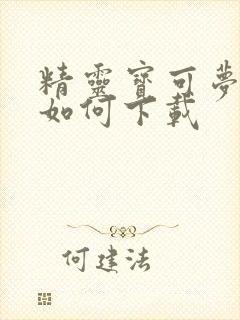 精靈寶可夢
如何下載
何建法